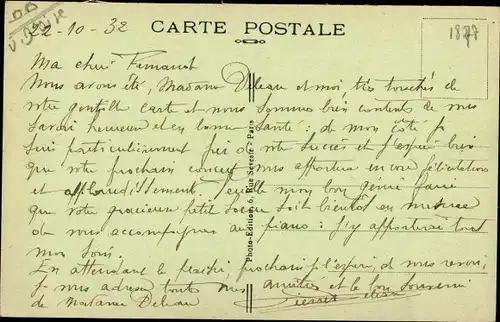 22-10-32
CARTE POSTALE
1877
Ma cher Fernand
Nous avons été, Madame Deleau et moi, très touchés de
votre gentille carte et nous sommes bien contents de vous
savoir heureux et en bonne santé : de mon côté je
suis particulièrement fier de votre succès et j'espère bien
que votre prochain concert vous apportera encore félicitations
et applaudissements. mon bon génie faire
que votre gracieuse petite soeur soit bientôt en mesure
de vous accompagner au piano : j'y apporterai tout
mon soin.
En attendant le plaisir, prochain j'espère, de vous revoir,
je vous adresse toutes mes amitiés et le bon souvenir
de Madame Deleau
Pierre Deleau
Photo-Edition, 6, Rue Severo - Paris